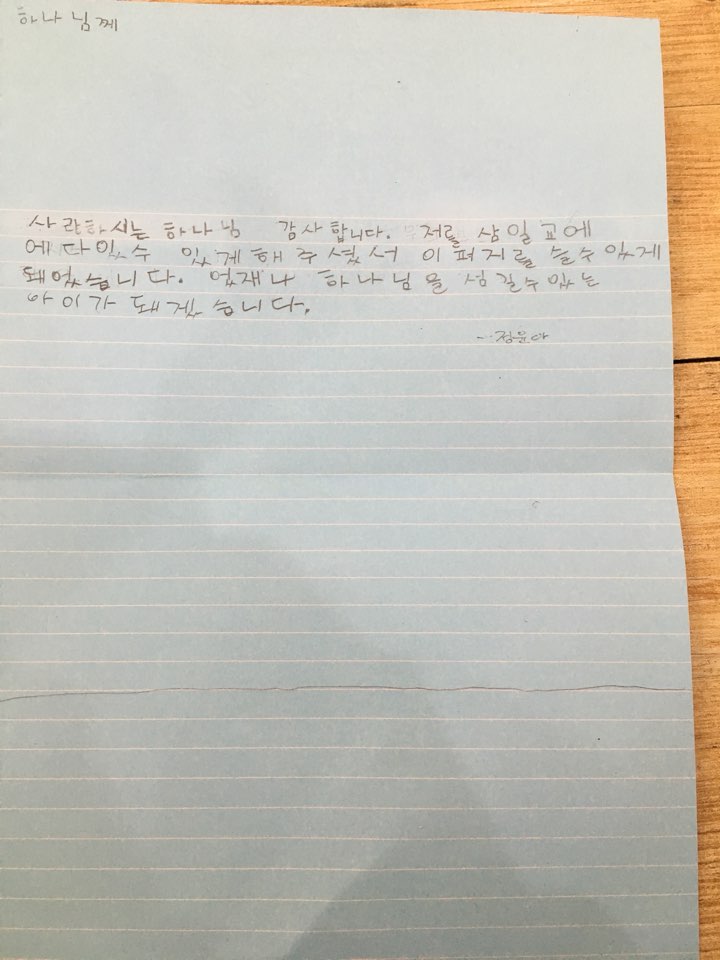 하나님께
사랑하시는 하나님 감사합니다. 저를 삼일교에
에다있수 있게해주셨서 이펴지를 쓸수있게
돼었습니다. 었재나 하나님을 섬길수있는
아이가 돼겠습니다.
--정윤아